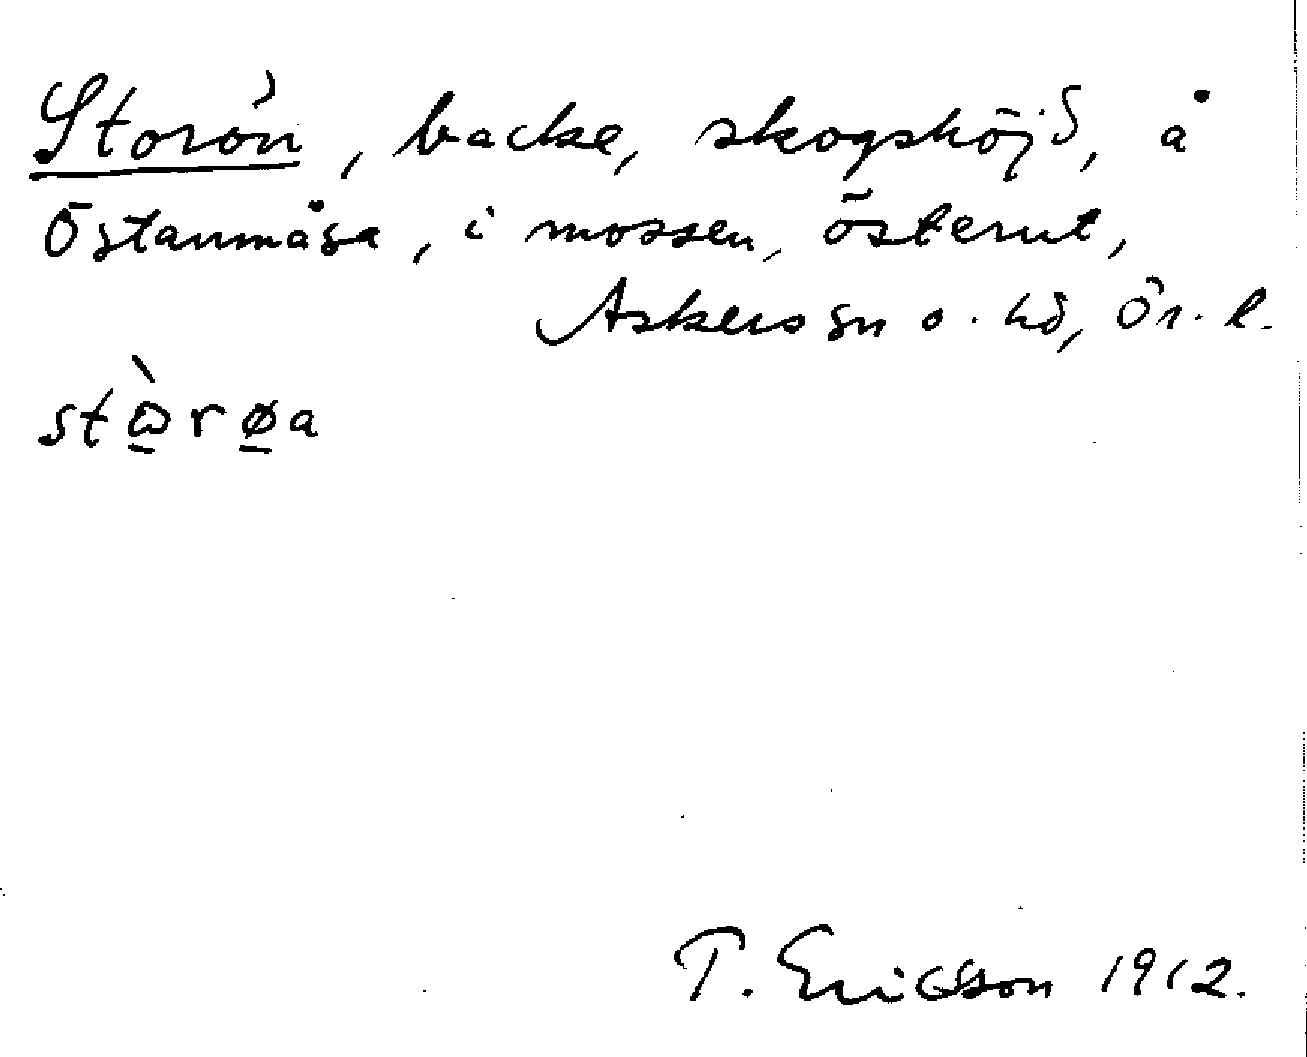 Storön, backe, skogshöjd, å
Östanmåsa, i mossen, österut,
Askers sn o. hd, Ör. l.
stὼ̱rø̱a
T. Ericsson 1912.